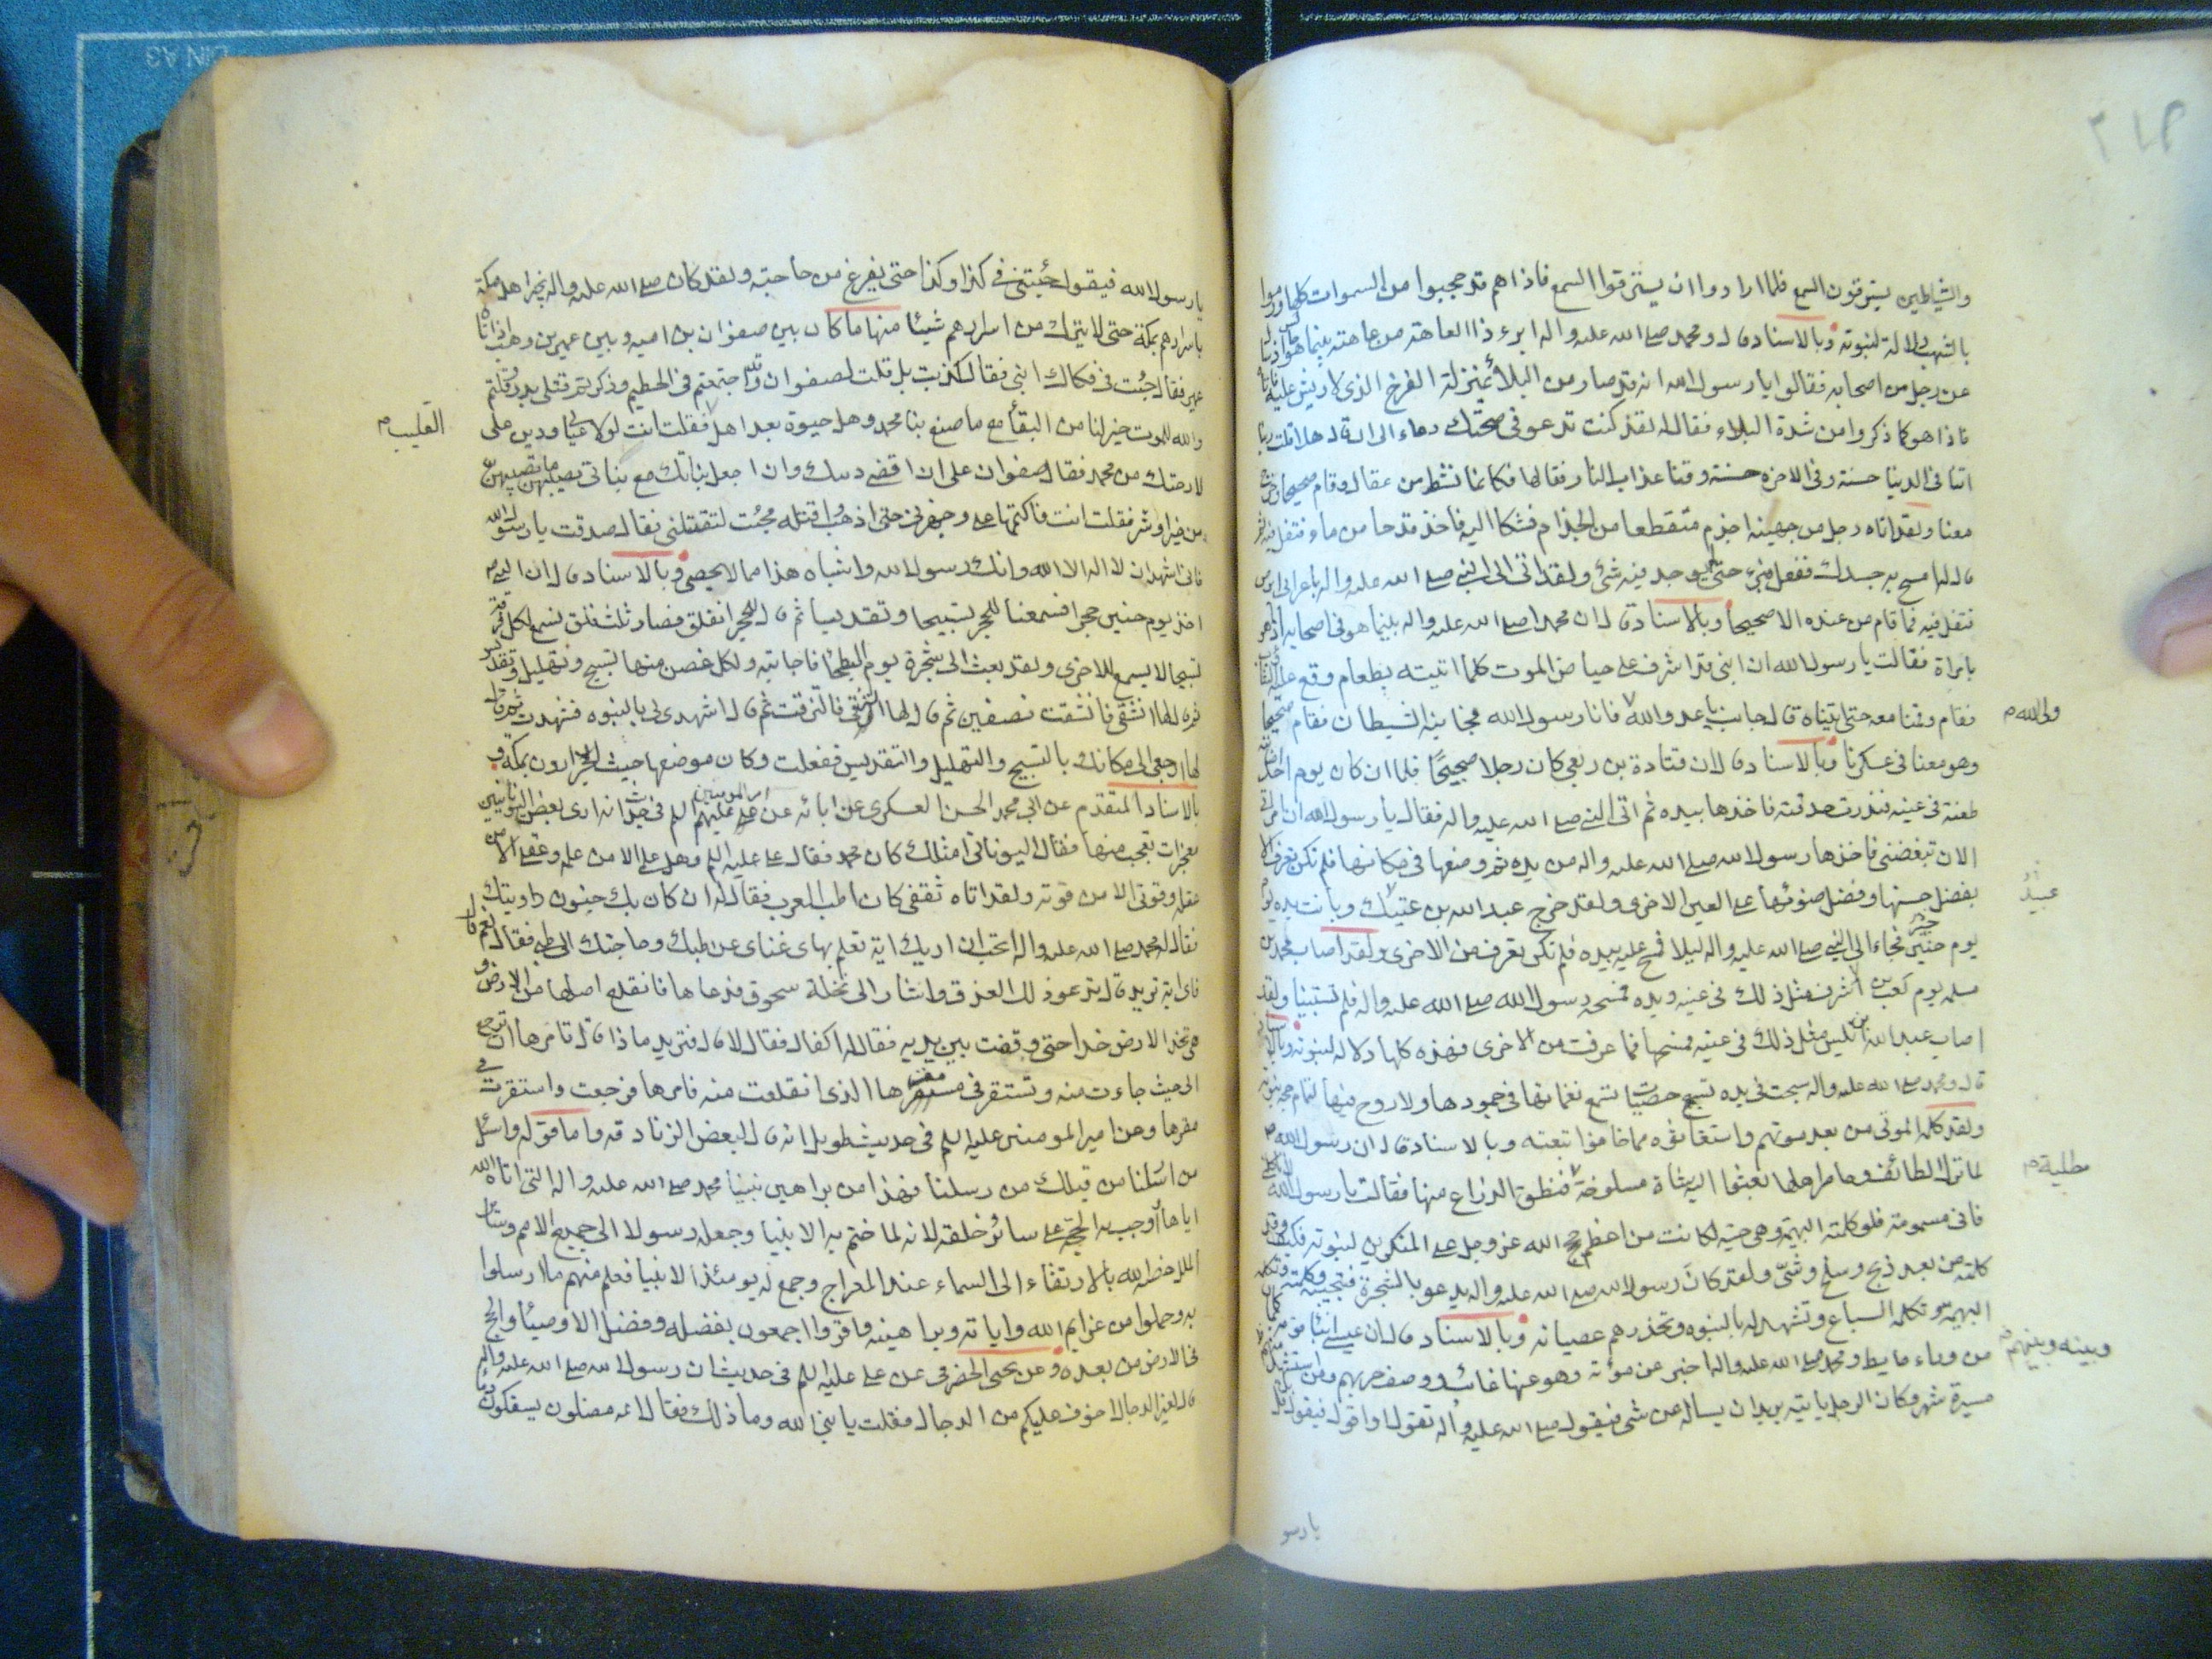 والشياطين يسترقون السمع فلما ارادوا ان يسترقوا السمع فاذا هم قد حجبوا من السموات كلها ورموا
بالشهب دلالة لنبوته وبالاسناد قال و محمد صلى الله عليه واله ابرء ذا العاهة من عاهته بينما هو
عن رجل من اصحابه فقالوا يا رسول الله انه قد صار من البلاء بمنزلة الفرخ الذى لا ريش عليه
فاذا هو كما ذكروا من شدة البلاء فقال له لقد كنت تدعو فى صحتك دعاء
اتنا فى الدنيا حسنة وفى الاخرة حسنة وقنا عذاب النار فقالها فكانما نشط من عقال وقام صحيحا وخرج
معنا ولقد اتاه رجل من جهينه اجذم متقطعا من الجذام فشكا اليه فاخذ قدحا من ماء فتفل فيه ثم
قال له امسح به جسدك ففعل فبرئ حتى لم يوجد فيه شئ ولقد اتى الى النبى صلى الله عليه واله باعرابى ابرص
فتفل فيه فما قام من عنده الا صحيحا وبالاسناد قال ان محمدا صلى الله عليه واله بينما هو فى اصحابه اذا هو
بامراة فقالت يا رسول الله ان ابنى قد اشرف على حياض الموت كلما اتيته بطعام وقع عليه
فقام وقمنا معه حتى اتيناه قال جانب يا عدو الله فانا رسول الله فجانبه الشيطان فقام صحيحا
ولى الله
وهو معنا فى عسكرنا وبالاسناد قال ان قتادة بن ربعى كان رجلا صبيحا فلما ان كان يوم احد
طعنة فى عينه فبدرت حدقته فاخذها بيده ثم اتى النبى صلى الله عليه واله فقال يا رسول الله ان امراتى
الان تبغضنى فاخذها رسول الله صلى الله عليه واله من يده ثم وضعها فى مكانها فلم تكن تعرف الا
بفضل حسنها وفضل ضوئها على العين الاخرى ولقد خرج عبد الله بن عتيك وبانت يده
عبيد
يوم حنين فجاء الى النبى صلى الله عليه واله ليلا فمسح عليه بيده فلم تكن تعرف من الاخرى ولقد اصاب محمد بن
مسلمه يوم كعب بن اشرف مثل ذلك فى عينه ويده فمسحه رسول الله صلى الله عليه واله فلم تستبينا ولقد
اصاب عبد الله بن انيس مثل ذلك فى عينه فمسحها فما عرفت من الاخرى فهذه كلها دلالة لنبوته
قال و محمد صلى الله عليه واله سبحت فى يده تسع حصيات تسمع نغماتها فى جمودها ولا روح فيها لتمام حجة نبوته
ولقد كلمه الموتى من بعد موتهم واستغاثوه مما خافوا تبعته وبالاسناد قال ان رسول الله
لما نزل الطائف وحاصر اهلها بعثوا اليه بشاة مسلوخة فنطق الذراع منها فقالت يا رسول الله
مطلية
فانى مسمومة فلو كلمته البهيمة وهى حية لكانت من اعظم حجج الله عز وجل على المنكرين لنبوته فكيف وقد
كلمته من بعد ذبح وسلخ وشى ولقد كان رسول الله صلى الله عليه واله يدعو بالشجرة فتجيبه وكلمته
البهيمة وتكلمه السباع وتشهد له بالنبوه وتحذرهم عصيانه وبالاسناد قال ان عيسى
من وراء حايط و محمد صلى الله عليه واله اخبر عن مؤتة وهو عنها غائب ووصف حربهم ومن استشهد
وبينه وبينهم
مسيرة شهر وكان الرجل ياتيه يريد ان يساله عن شئ فيقول صلى الله عليه واله تقول او اقول فيقول
يا رسو
يا رسول الله فيقول جئتنى فى كذا وكذا حتى يفرغ من حاجته ولقد كان صلى الله عليه واله يخبر اهل مكة
باسرارهم بمكة حتى لا يترك من اسرارهم شيئا منها ما كان بين صفوان بن اميه وبين عمير بن وهب اذ اتاه
عمير فقال جئت فى فكاك ابنى فقال كذبت بل قلت لصفوان وقد اجتمعتم فى الحطيم وذكرتم قتلى بدر وقلتم
والله للموت خير لنا من البقاء مع ما صنع بنا محمد وهل حيوة بعد اهل فقلت انت لولا عيالى ودين على
القليب
لارحتك من محمد فقال صفوان على ان اقضى دينك وان اجعل بناتك مع بناتى يصيبهن ما يصيبهن
من خير او شر فقلت انت فاكتمها على وجهزنى حتى اذهب فاقتله فجئت لتقتلنى فقال صدقت يا رسول الله
فانى اشهد ان لا اله الا الله وانك رسول الله واشباه هذا مما لا يحصى وبالاسناد قال ان النبى
اخذ يوم حنين حجرا فسمعنا للحجر تسبيحا وتقديسا ثم قال للحجر انفلق فصار ثلث فلق نسمع لكل
تسبيحا لا يسمع للاخرى ولقد بعث الى شجرة يوم البطحا فاجابته ولكل غصن منها تسبيح وتهليل وتقديس
ثم قال لها انشقى فانشقت نصفين ثم قال لها التزقى فالتزقت ثم قال اشهدى لى بالنبوه فشهدت ثم قال
لها ارجعى الى مكانك بالتسبيح والتهليل والتقديس ففعلت وكان موضعها حيث الجزارون بمكه و
بالاسناد المتقدم عن ابى محمد الحسن العسكرى عن ابائه عن على امير المؤمنين عليهم السلم فى حديث انه ارى بعض اليونانيين
معجزات تعجب منها فقال اليونانى امثلك كان محمد فقال على عليه السلم وهل علمى الا من علمه وعقلى الا من
عقله وقوتى الا من قوته ولقد اتاه ثقفى كان اطب العرب فقال له ان كان بك جنون داويتك
فقال له محمد صلى الله عليه واله اتحب ان اريك اية تعلم بها غناى عن طبك وحاجتك الى طبى فقال نعم قال
فاى اية تريد قال تدعو ذلك العذق واشار الى نخلة سحوق فدعاها فانقلع اصلها من الارض و
هى تخد الارض خدا حتى وقفت بين يديه فقال له اكفاك فقال لا قال فتريد ماذا قال تامرها ان ترجع
الى حيث جاءت منه وتستقر فى مقرها الذى انقلعت منه فامرها فرجعت واستقرت فى
مقرها وعن امير المومنين عليه السلم فى حديث طويل انه قال لبعض الزنادقه واما قوله واسئل
من ارسلنا من قبلك من رسلنا فهذا من براهين نبينا محمد صلى الله عليه واله التى اتاه الله
اياها واوجب به الحجة على سائر خلقه لانه لما ختم به الانبيا وجعله رسولا الى جميع الامم وسائر
الملل خصه الله بالارتقاء الى السماء عند المعراج وجمع له يومئذ الانبيا فعلم منهم ما ارسلوا
به وحملوا من عزايم الله واياته وبراهينه واقروا اجمعون بفضله وفضل الاوصياء والحج
فى الارض من بعده وعن يحيى الحضرمى عن على عليه السلم فى حديث ان رسول الله صلى الله عليه واله
قال لغير الدجال اخوف عليكم من الدجال فقلت يا نبى الله وما ذلك فقال ائمه مضلون يسفكون